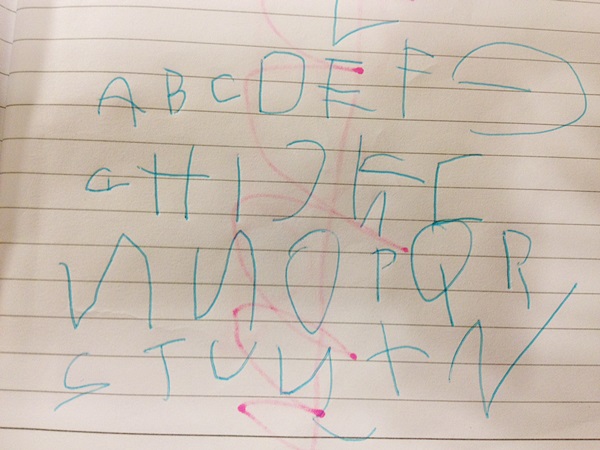 A B C D E F
G H I J K L
M N O P Q R
S T U y X